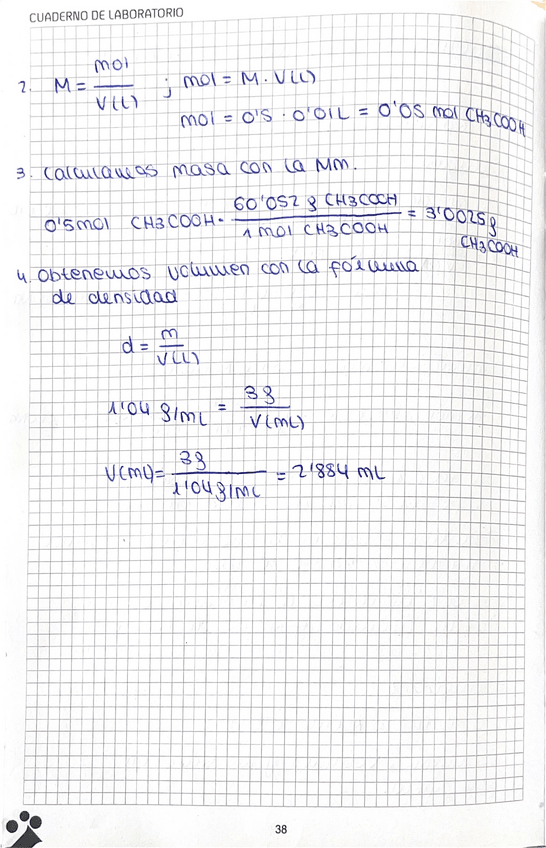 CUADERNO DE LABORATORIO
2. M = mol / V(L) ; mol = M · V(L)
mol = 0'5 · 0'01L = 0'05 mol CH3COOH
3. Calculamos masa con la Mm.
0'5mol CH3COOH · 60'052 g CH3COOH / 1 mol CH3COOH = 3'0025g CH3COOH
4. Obtenemos volumen con la fórmula
de densidad
d = m / V(L)
1'04 g/mL = 3g / V(mL)
V(mL) = 3g / 1'04g/mL = 2'884 mL
38